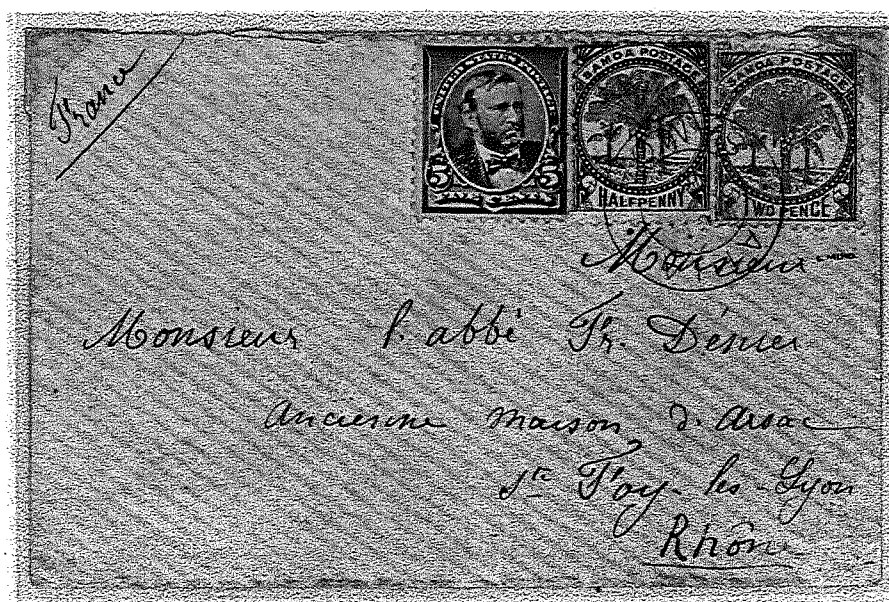 France
UNITED STATES POSTAGE
5 5
SAMOA POSTAGE
HALFPENNY
SAMOA POSTAGE
TWO PENCE
Monsieur
Monsieur l'abbé Fr. Dénier
Ancienne maison d'Arsac
Ste Foy-les-Lyon
Rhône